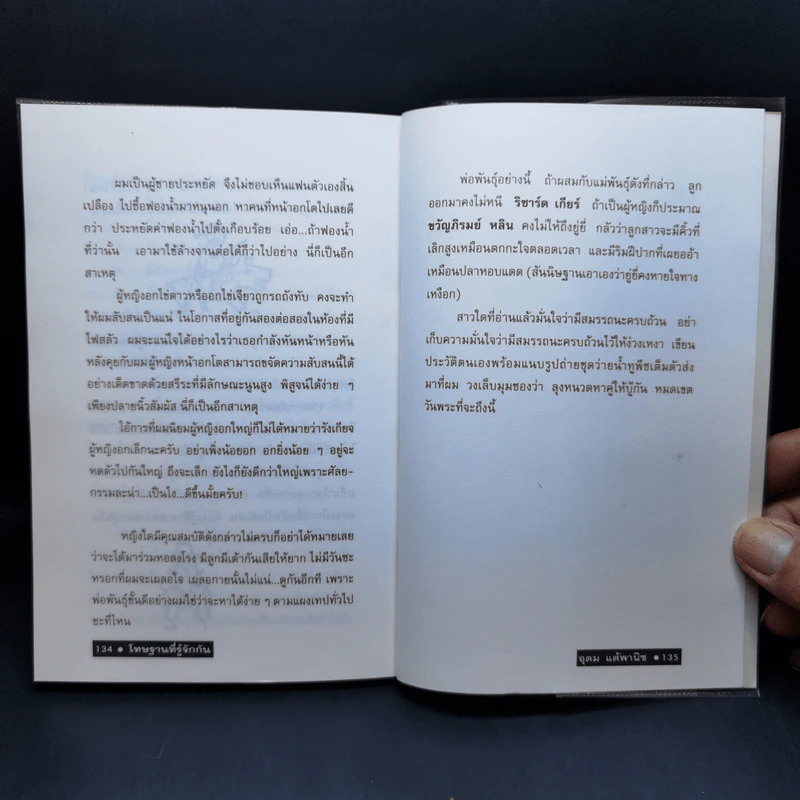 ผมเป็นผู้ชายประหยัด จึงไม่ชอบเห็นแฟนตัวเองสิ้น
เปลือง ไปซื้อฟองน้ำมาหนุนอก หาคนที่หน้าอกโตไปเลยดี
กว่า ประหยัดค่าฟองน้ำไปตั้งเกือบร้อย เอ่อ...ถ้าฟองน้ำ
ที่ว่านั้น เอามาใช้ล้างจานต่อได้ก็ว่าไปอย่าง นี่ก็เป็นอีก
สาเหตุ
ผู้หญิงอกไข่ดาวหรืออกไข่เจียวถูกรถถังทับ คงจะทำ
ให้ผมสับสนเป็นแน่ ในโอกาสที่อยู่กันสองต่อสองในห้องที่มี
ไฟสลัว ผมจะแน่ใจได้อย่างไรว่าเธอกำลังหันหน้าหรือหัน
หลังคุยกับผมผู้หญิงหน้าอกโตสามารถขจัดความสับสนนี้ได้
อย่างเด็ดขาดด้วยสรีระที่มีลักษณะนูนสูง พิสูจน์ได้ง่าย ๆ
เพียงปลายนิ้วสัมผัส นี่ก็เป็นอีกสาเหตุ
ไอ้การที่ผมนิยมผู้หญิงอกใหญ่ก็ไม่ได้หมายว่ารังเกียจ
ผู้หญิงอกเล็กนะครับ อย่าเพิ่งน้อยอก อกยิ่งน้อย ๆ อยู่จะ
หดตัวไปกันใหญ่ ถึงจะเล็ก ยังไงก็ยังดีกว่าใหญ่เพราะศัลย-
กรรมละน่า...เป็นไง...ดีขึ้นมั้ยครับ!
หญิงใดมีคุณสมบัติดังกล่าวไม่ครบก็อย่าได้หมายเลย
ว่าจะได้มาร่วมหอลงโรง มีลูกมีเต้ากันเสียให้ยาก ไม่มีวันซะ
หรอกที่ผมจะเผลอใจ เผลอกายนั้นไม่แน่...ดูกันอีกที เพราะ
พ่อพันธุ์ชั้นดีอย่างผมใช่ว่าจะหาได้ง่าย ๆ ตามแผงเทปทั่วไป
ซะที่ไหน
134 ● โทษฐานที่รู้จักกัน
พ่อพันธุ์อย่างนี้ ถ้าผสมกับแม่พันธุ์ดังที่กล่าว ลูก
ออกมาคงไม่หนี ริชาร์ด เกียร์ ถ้าเป็นผู้หญิงก็ประมาณ
ขวัญภิรมย์ หลิน คงไม่ให้ถึงยู่ยี่ กลัวว่าลูกสาวจะมีคิ้วที่
เลิกสูงเหมือนตกกะใจตลอดเวลา และมีริมฝีปากที่เผยออ้า
เหมือนปลาหอบแดด (สันนิษฐานเอาเองว่ายู่ยี่คงหายใจทาง
เหงือก)
สาวใดที่อ่านแล้วมั่นใจว่ามีสมรรถนะครบถ้วน อย่า
เก็บความมั่นใจว่ามีสมรรถนะครบถ้วนไว้ให้ง่วงเหงา เขียน
ประวัติตนเองพร้อมแนบรูปถ่ายชุดว่ายน้ำทูพีชเต็มตัวส่ง
มาที่ผม วงเล็บมุมซองว่า ลุงหนวดหาคู่ให้บู้กัน หมดเขต
วันพระที่จะถึงนี้
อุดม แต้พานิช ● 135